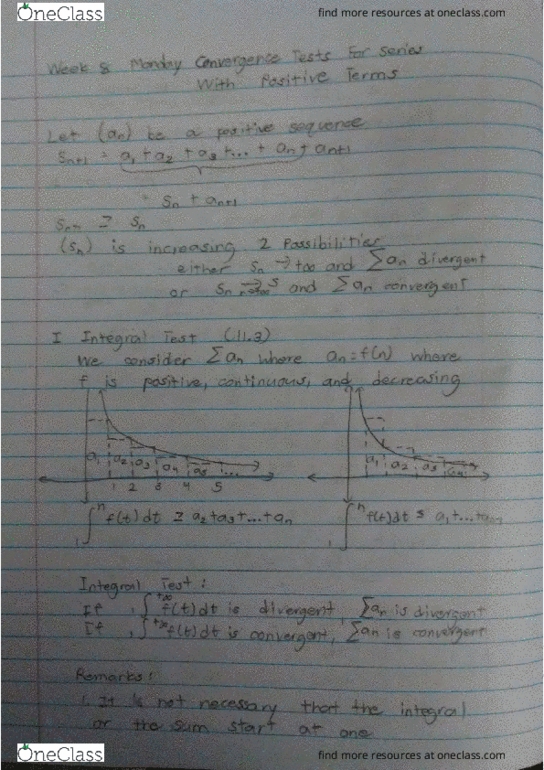 OneClass
find more resources at oneclass.com
Week 8 Monday Convergence Tests For Series
With Positive Terms
Let (an) be a positive sequence
Sn+1 = a1 + a2 + a3 + ... + an + an+1
Sn + an+1
≥ Sn
(Sn) is increasing 2 Possibilities
either Sn → +∞ and ∑an divergent
or Sn → S and ∑an convergent
I Integral Test (11.3)
We consider ∑an where an = f(n) where
f is positive, continuous, and decreasing
a1 a2 a3 a4 a5 ...
1 2 3 4 5
a1 a2 a3
∫1^n f(t) dt ≥ a2 + a3 + ... + an
∫1^n f(t) dt ≤ a1 + ... +
Integral Test:
If, ∫^+∞ f(t) dt is divergent, ∑an is divergent
If, ∫^+∞ f(t) dt is convergent, ∑an is convergent
Remarks:
1. It is not necessary that the integral
or the sum start at one
OneClass
find more resources at oneclass.com